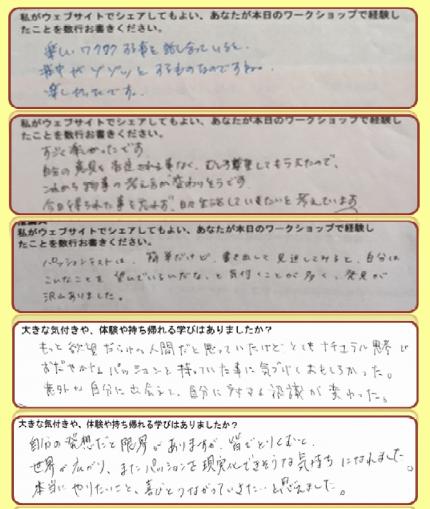 私がウェブサイトでシェアしてもよい、あなたが本日のワークショップで経験し
たことを数行お書きください。
楽しいワクワクする事を話し合っていると、
背中がゾゾッとするものなのですね。
楽しかったです。
私がウェブサイトでシェアしてもよい、あなたが本日のワークショップで経験し
たことを数行お書きください。
すごく楽しかったです
自分の意見も否定される事なく、むしろ尊重してもらえたので、
これから物事の考え方が変わりそうです
今日得られた事を忘れず、日々生活していきたいと考えています
私がウェブサイトでシェアしてもよい、あなたが本日のワークショップで経験し
たことを数行お書きください。
パッションテストは、簡単だけど、書き出して見返してみると、自分は
こんなことを望んでいるんだな、と気付くことが多く、発見が
沢山ありました。
大きな気付きや、体験や持ち帰れる学びはありましたか?
もっと欲望だらけの人間だと思っていたけど、とてもナチュラル思考で
おだやかなパッションを持っていた事に気づけておもしろかった。
意外な自分に出会えて、自分に対する認識が変わった。
大きな気付きや、体験や持ち帰れる学びはありましたか?
自分の発想だと限界がありますが、皆でとりくむと、
世界が広がり、またパッションを現実化できそうな気持ちになれました。
本当にやりたいこと、喜びとつながっていきたいと思えました。